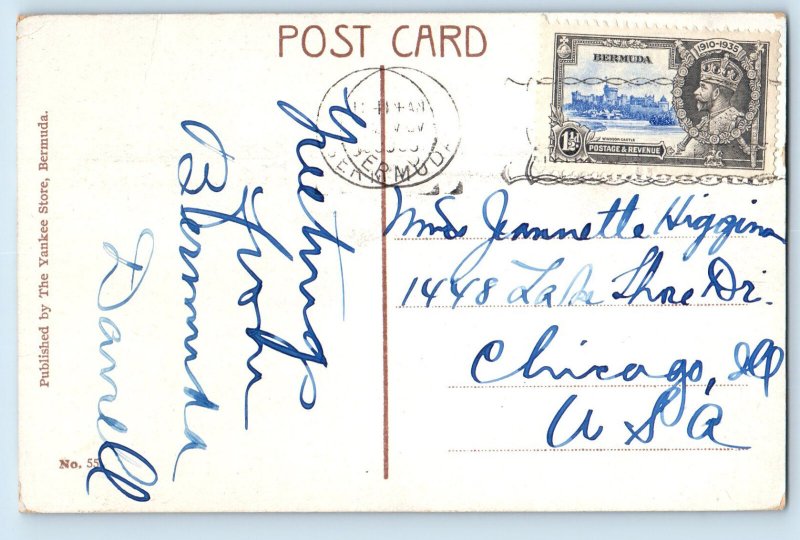 POST CARD
1910-1935
BERMUDA
WINDSOR CASTLE
1½d
POSTAGE & REVENUE
BERMUDA
Greetings
From
Bermuda
Darrell
Miss Jeannette Higgins
1448 Lake Shore Dr.
Chicago, Ill
U S A
Published by The Yankee Store, Bermuda.
No. 55